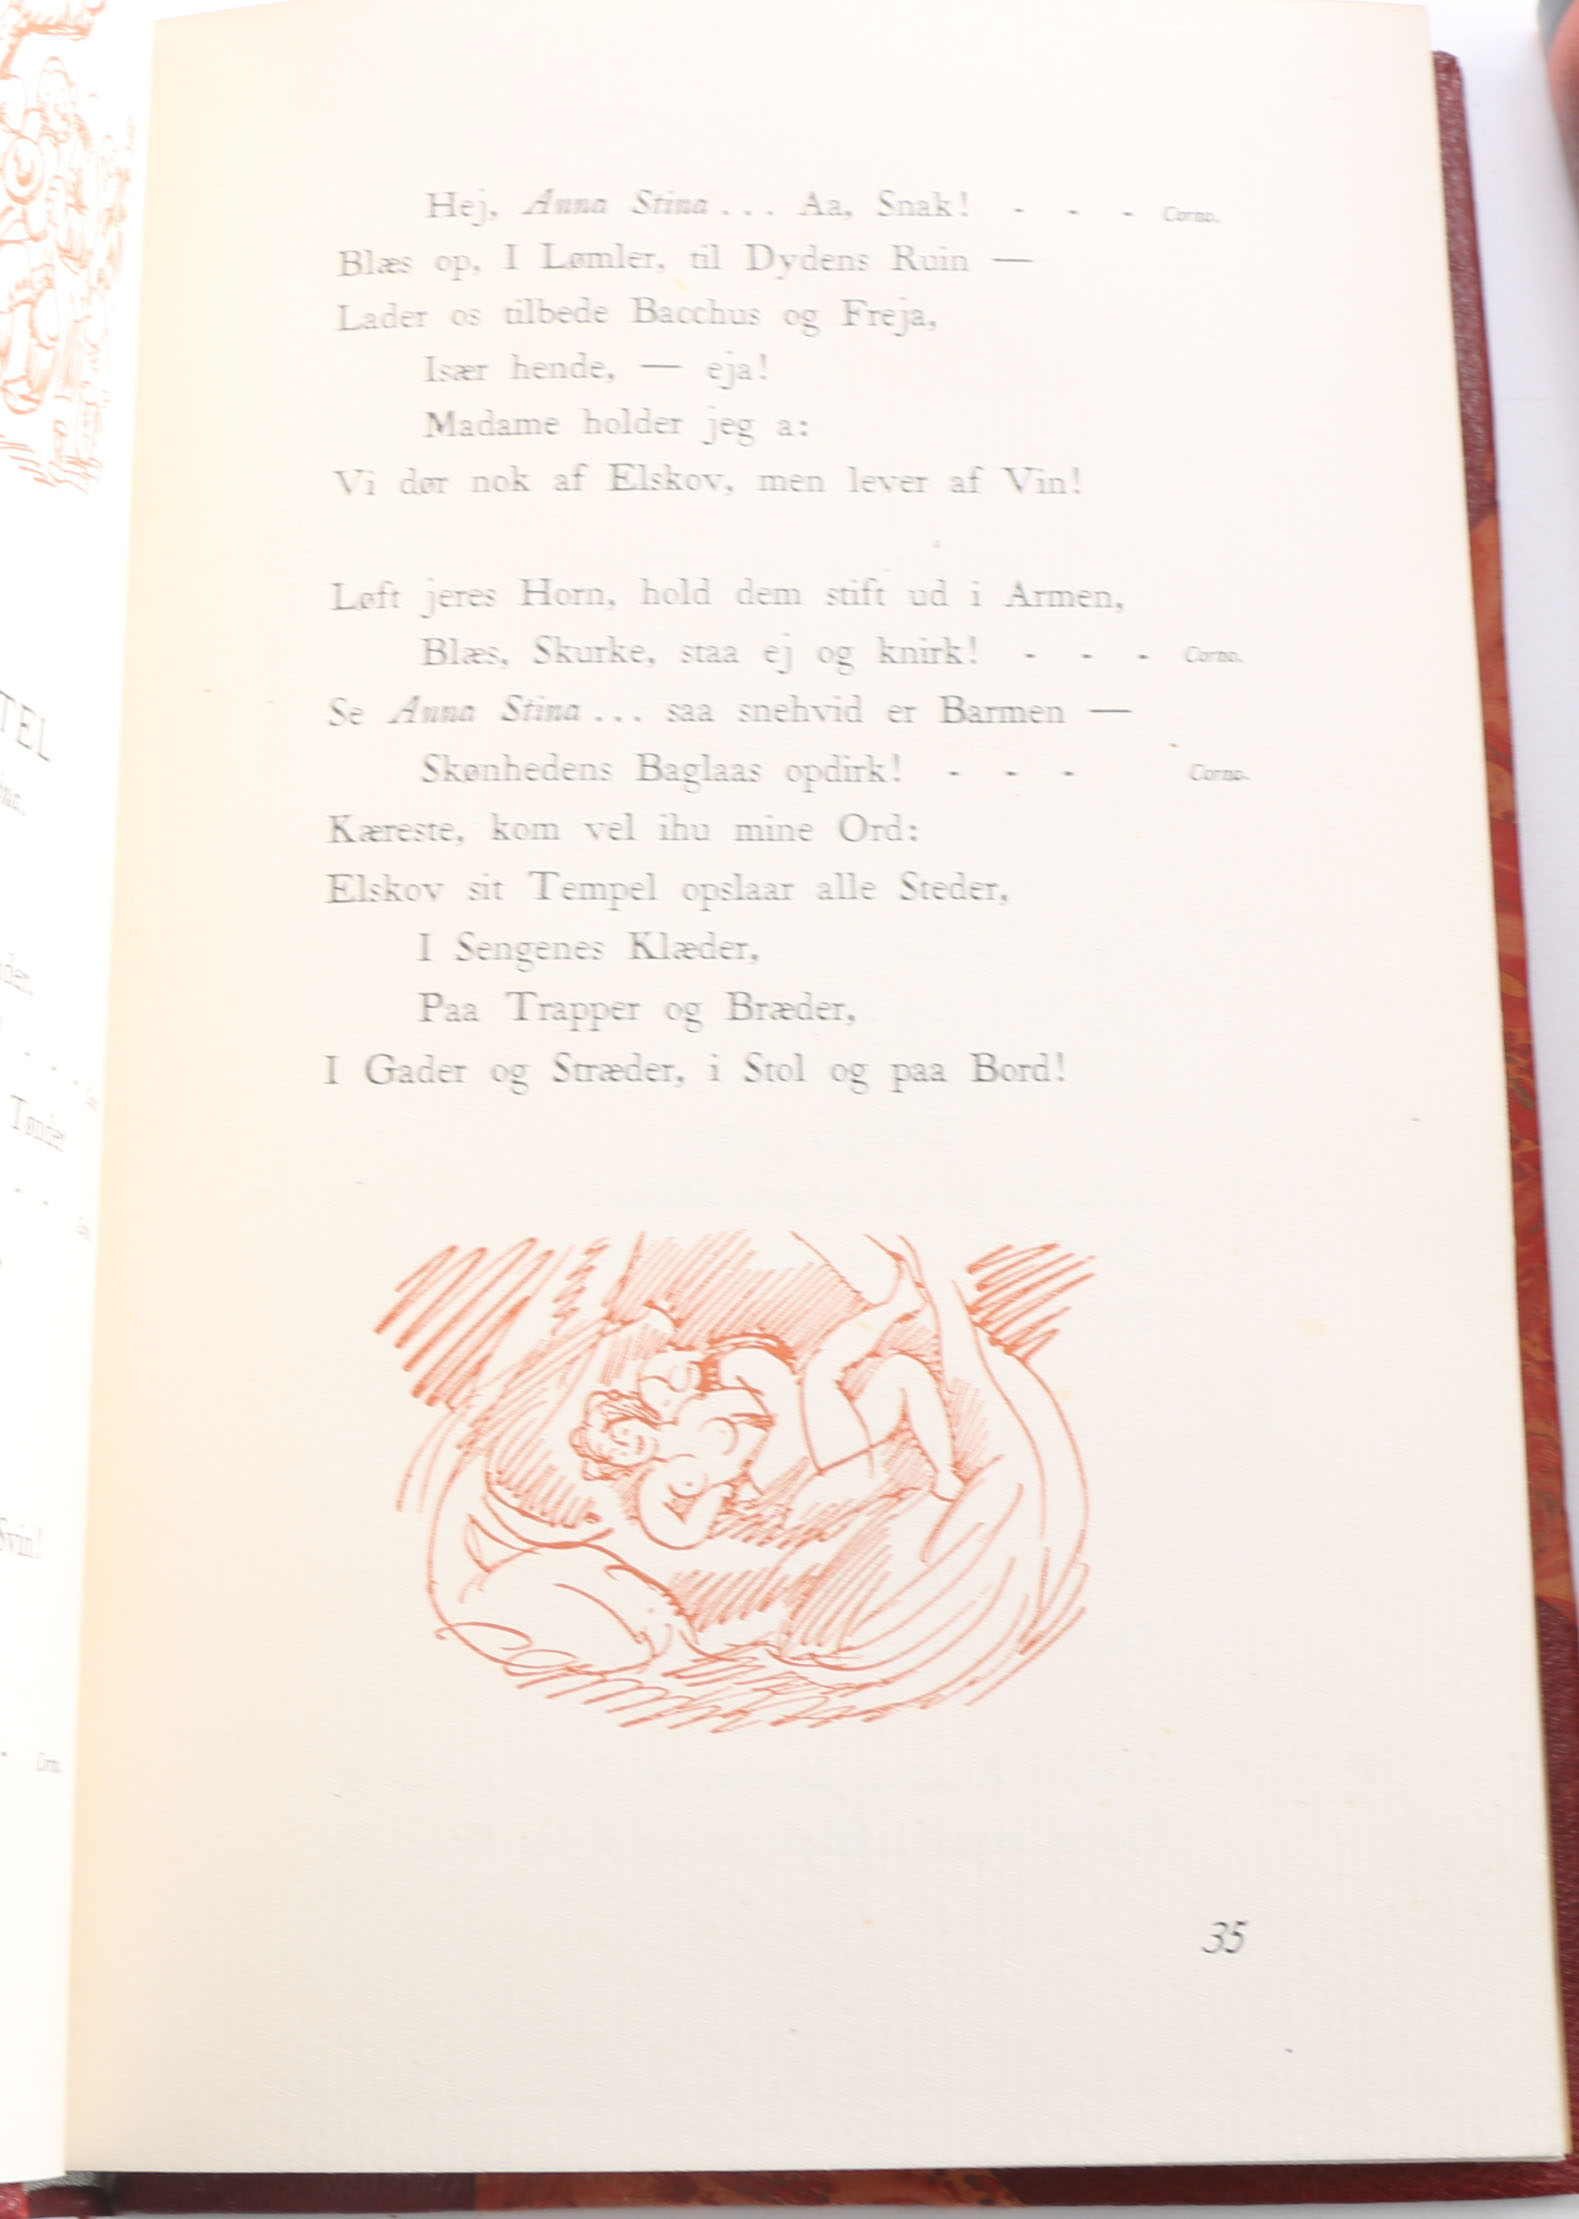 TEL
der,
Tønder
Svin!
Corno.
Hej, Anna Stina... Aa, Snak! - - - Corno.
Blæs op, I Lømler, til Dydens Ruin —
Lader os tilbede Bacchus og Freja,
Især hende, — eja!
Madame holder jeg a:
Vi dør nok af Elskov, men lever af Vin!
Løft jeres Horn, hold dem stift ud i Armen,
Blæs, Skurke, staa ej og knirk! - - - Corno.
Se Anna Stina... saa snehvid er Barmen —
Skønhedens Baglaas opdirk! - - - Corno.
Kæreste, kom vel ihu mine Ord:
Elskov sit Tempel opslaar alle Steder,
I Sengenes Klæder,
Paa Trapper og Bræder,
I Gader og Stræder, i Stol og paa Bord!
35